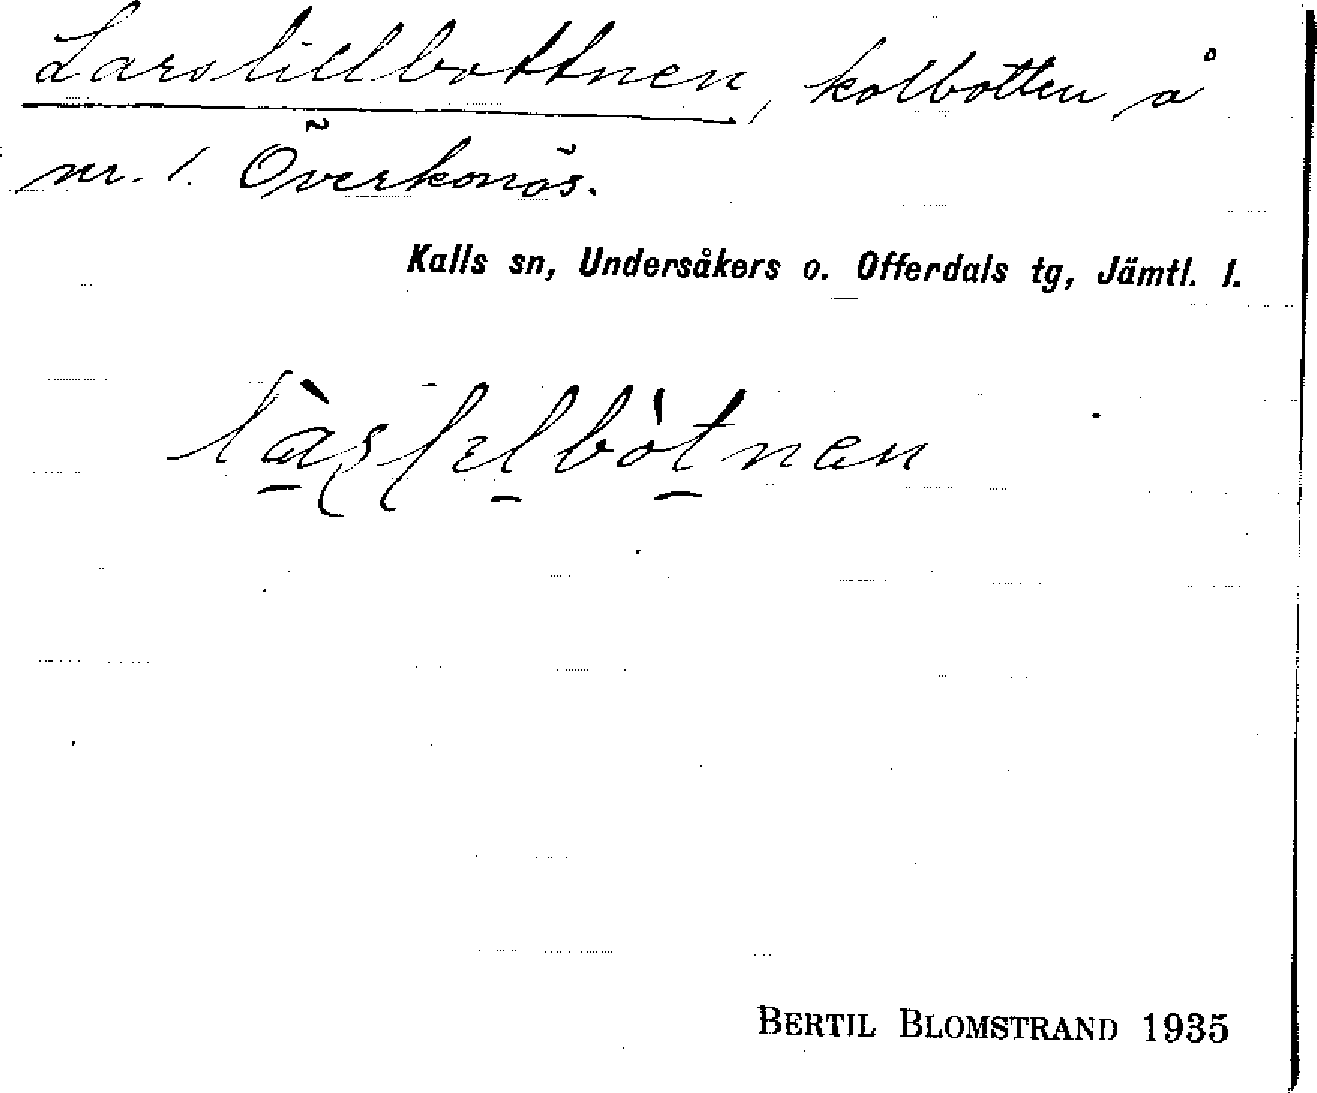 Larslillbottnen, kolbotten å
nr. 1. Överkonäs.
Kalls sn, Undersåkers o. Offerdals tg, Jämtl. l.
BERTIL BLOMSTRAND 1935